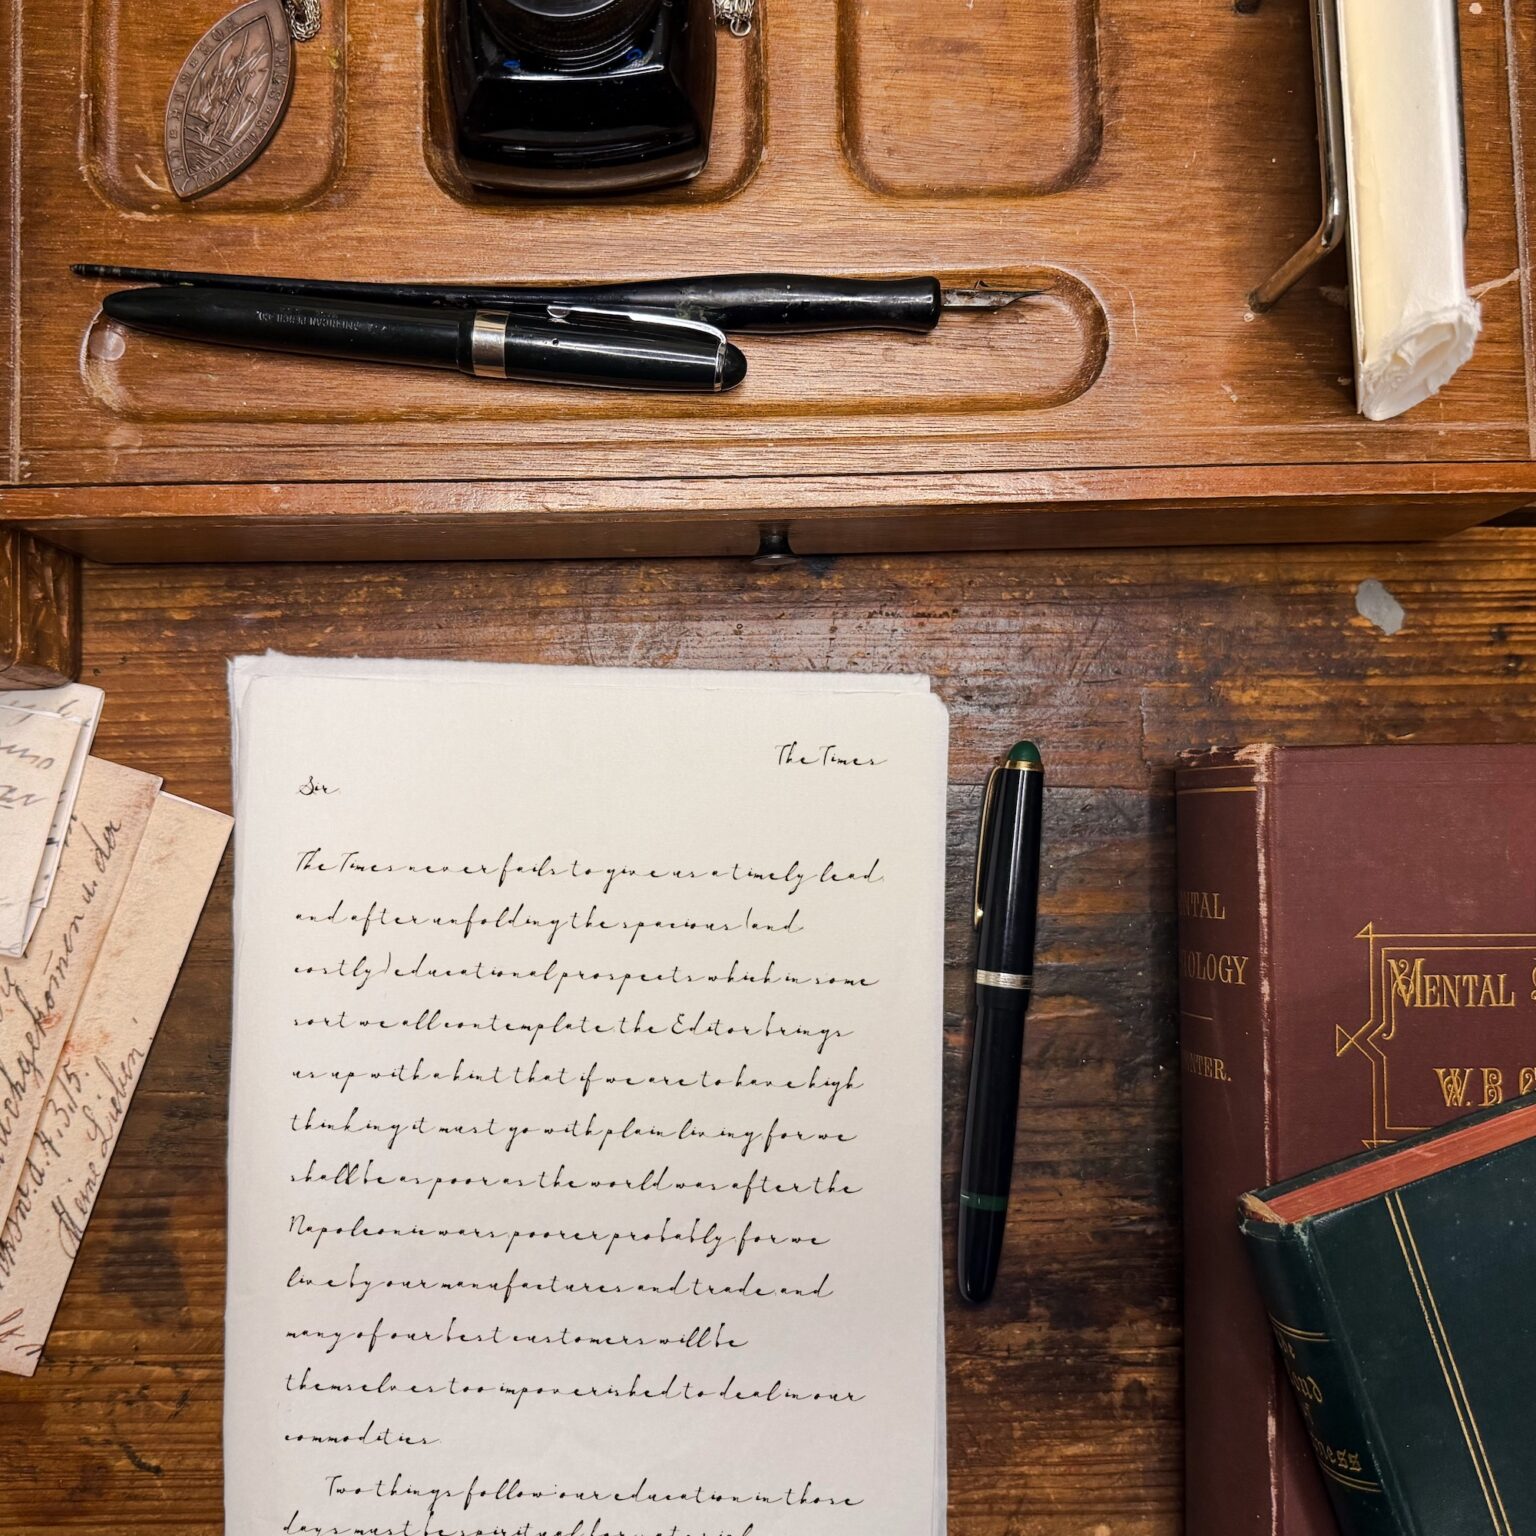 AMERICAN PENCIL CO.
The Times
Sir,
The Times never fails to give us a timely lead,
and after unfolding the spacious (and
costly) educational prospects which in some
sort we all contemplate, the Editor brings
us up with a hint that if we are to have high
thinking it must go with plain living, for we
shall be as poor as the world was after the
Napoleonic wars, poorer probably, for we
live by our manufactures and trade, and
many of our best customers will be
themselves too impoverished to deal in our
commodities.
Two things follow: our education in those
days must be spiritual
nachgekommen u. der
Front. d. 4.3.15.
Meine Lieben!
MENTAL
W.B.